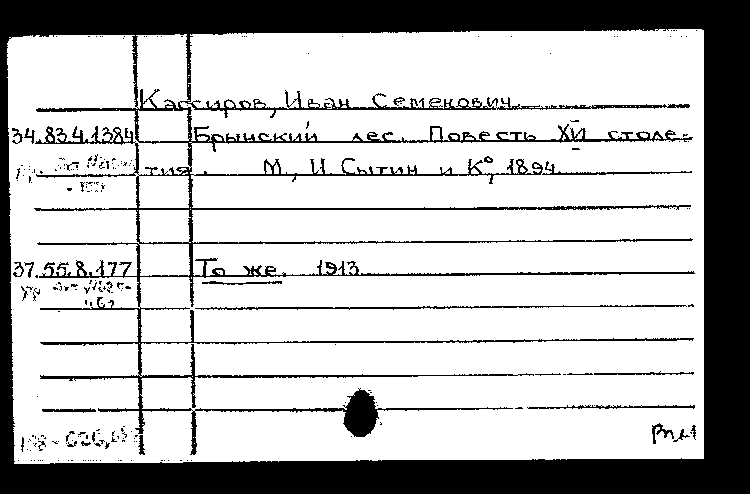 Кассиров, Иван Семенович.
34.83.4.1384 Брынский лес. Повесть XVI столе-
тия. М., И. Сытин и К°, 1894.
37.55.8.177 То же. 1913